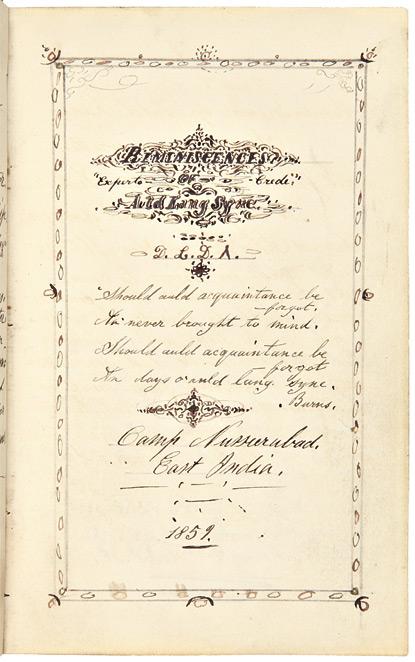 REMINISCENCES
"Experto OF Credi."
Auld Lang Syne.
D. L. D. A.
"Should auld acquaintance be
forgot.
An never brought to mind.
Should auld acquaintance be
forgot
An days o auld lang syne.
Burns.
Camp Nusseerabad.
East India.
1859.